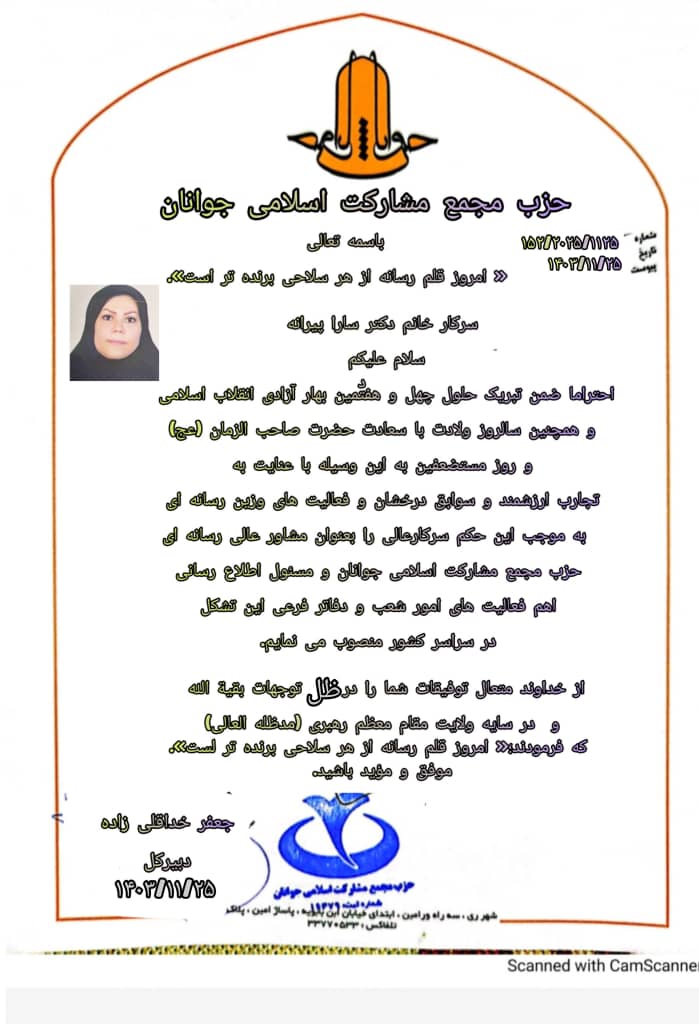 حزب مجمع مشارکت اسلامی جوانان
باسمه تعالی
شماره ۱۵۲/۲۰۲۵/۱۱۲۵
تاریخ ۱۴۰۳/۱۱/۲۵
پیوست
« امروز قلم رسانه از هر سلاحی برنده تر است».
سرکار خانم دکتر سارا پیرانه
سلام علیکم
احتراما ضمن تبریک حلول چهل و هفتمین بهار آزادی انقلاب اسلامی
و همچنین سالروز ولادت با سعادت حضرت صاحب الزمان (عج)
و روز مستضعفین به این وسیله با عنایت به
تجارب ارزشمند و سوابق درخشان و فعالیت های وزین رسانه ای
به موجب این حکم سرکارعالی را بعنوان مشاور عالی رسانه ای
حزب مجمع مشارکت اسلامی جوانان و مسئول اطلاع رسانی
اهم فعالیت های امور شعب و دفاتر فرعی این تشکل
در سراسر کشور منصوب می نمایم.
از خداوند متعال توفیقات شما را در ظلل توجهات بقیة الله
و در سایه ولایت مقام معظم رهبری (مدظله العالی)
که فرمودند:« امروز قلم رسانه از هر سلاحی برنده تر لست».
موفق و مؤید باشید.
جعفر خداقلی زاده
دبیرکل
۱۴۰۳/۱۱/۲۵
حزب مجمع مشارکت اسلامی جوانان
شماره ثبت: ۱۹۴۷۹
شهر ری ، سه راه ورامین ، ابتدای خیابان ابن بابویه ، پاساژ امین ، پلاک
تلفاکس : ۳۳۷۷۰۵۳۳
Scanned with CamScanner